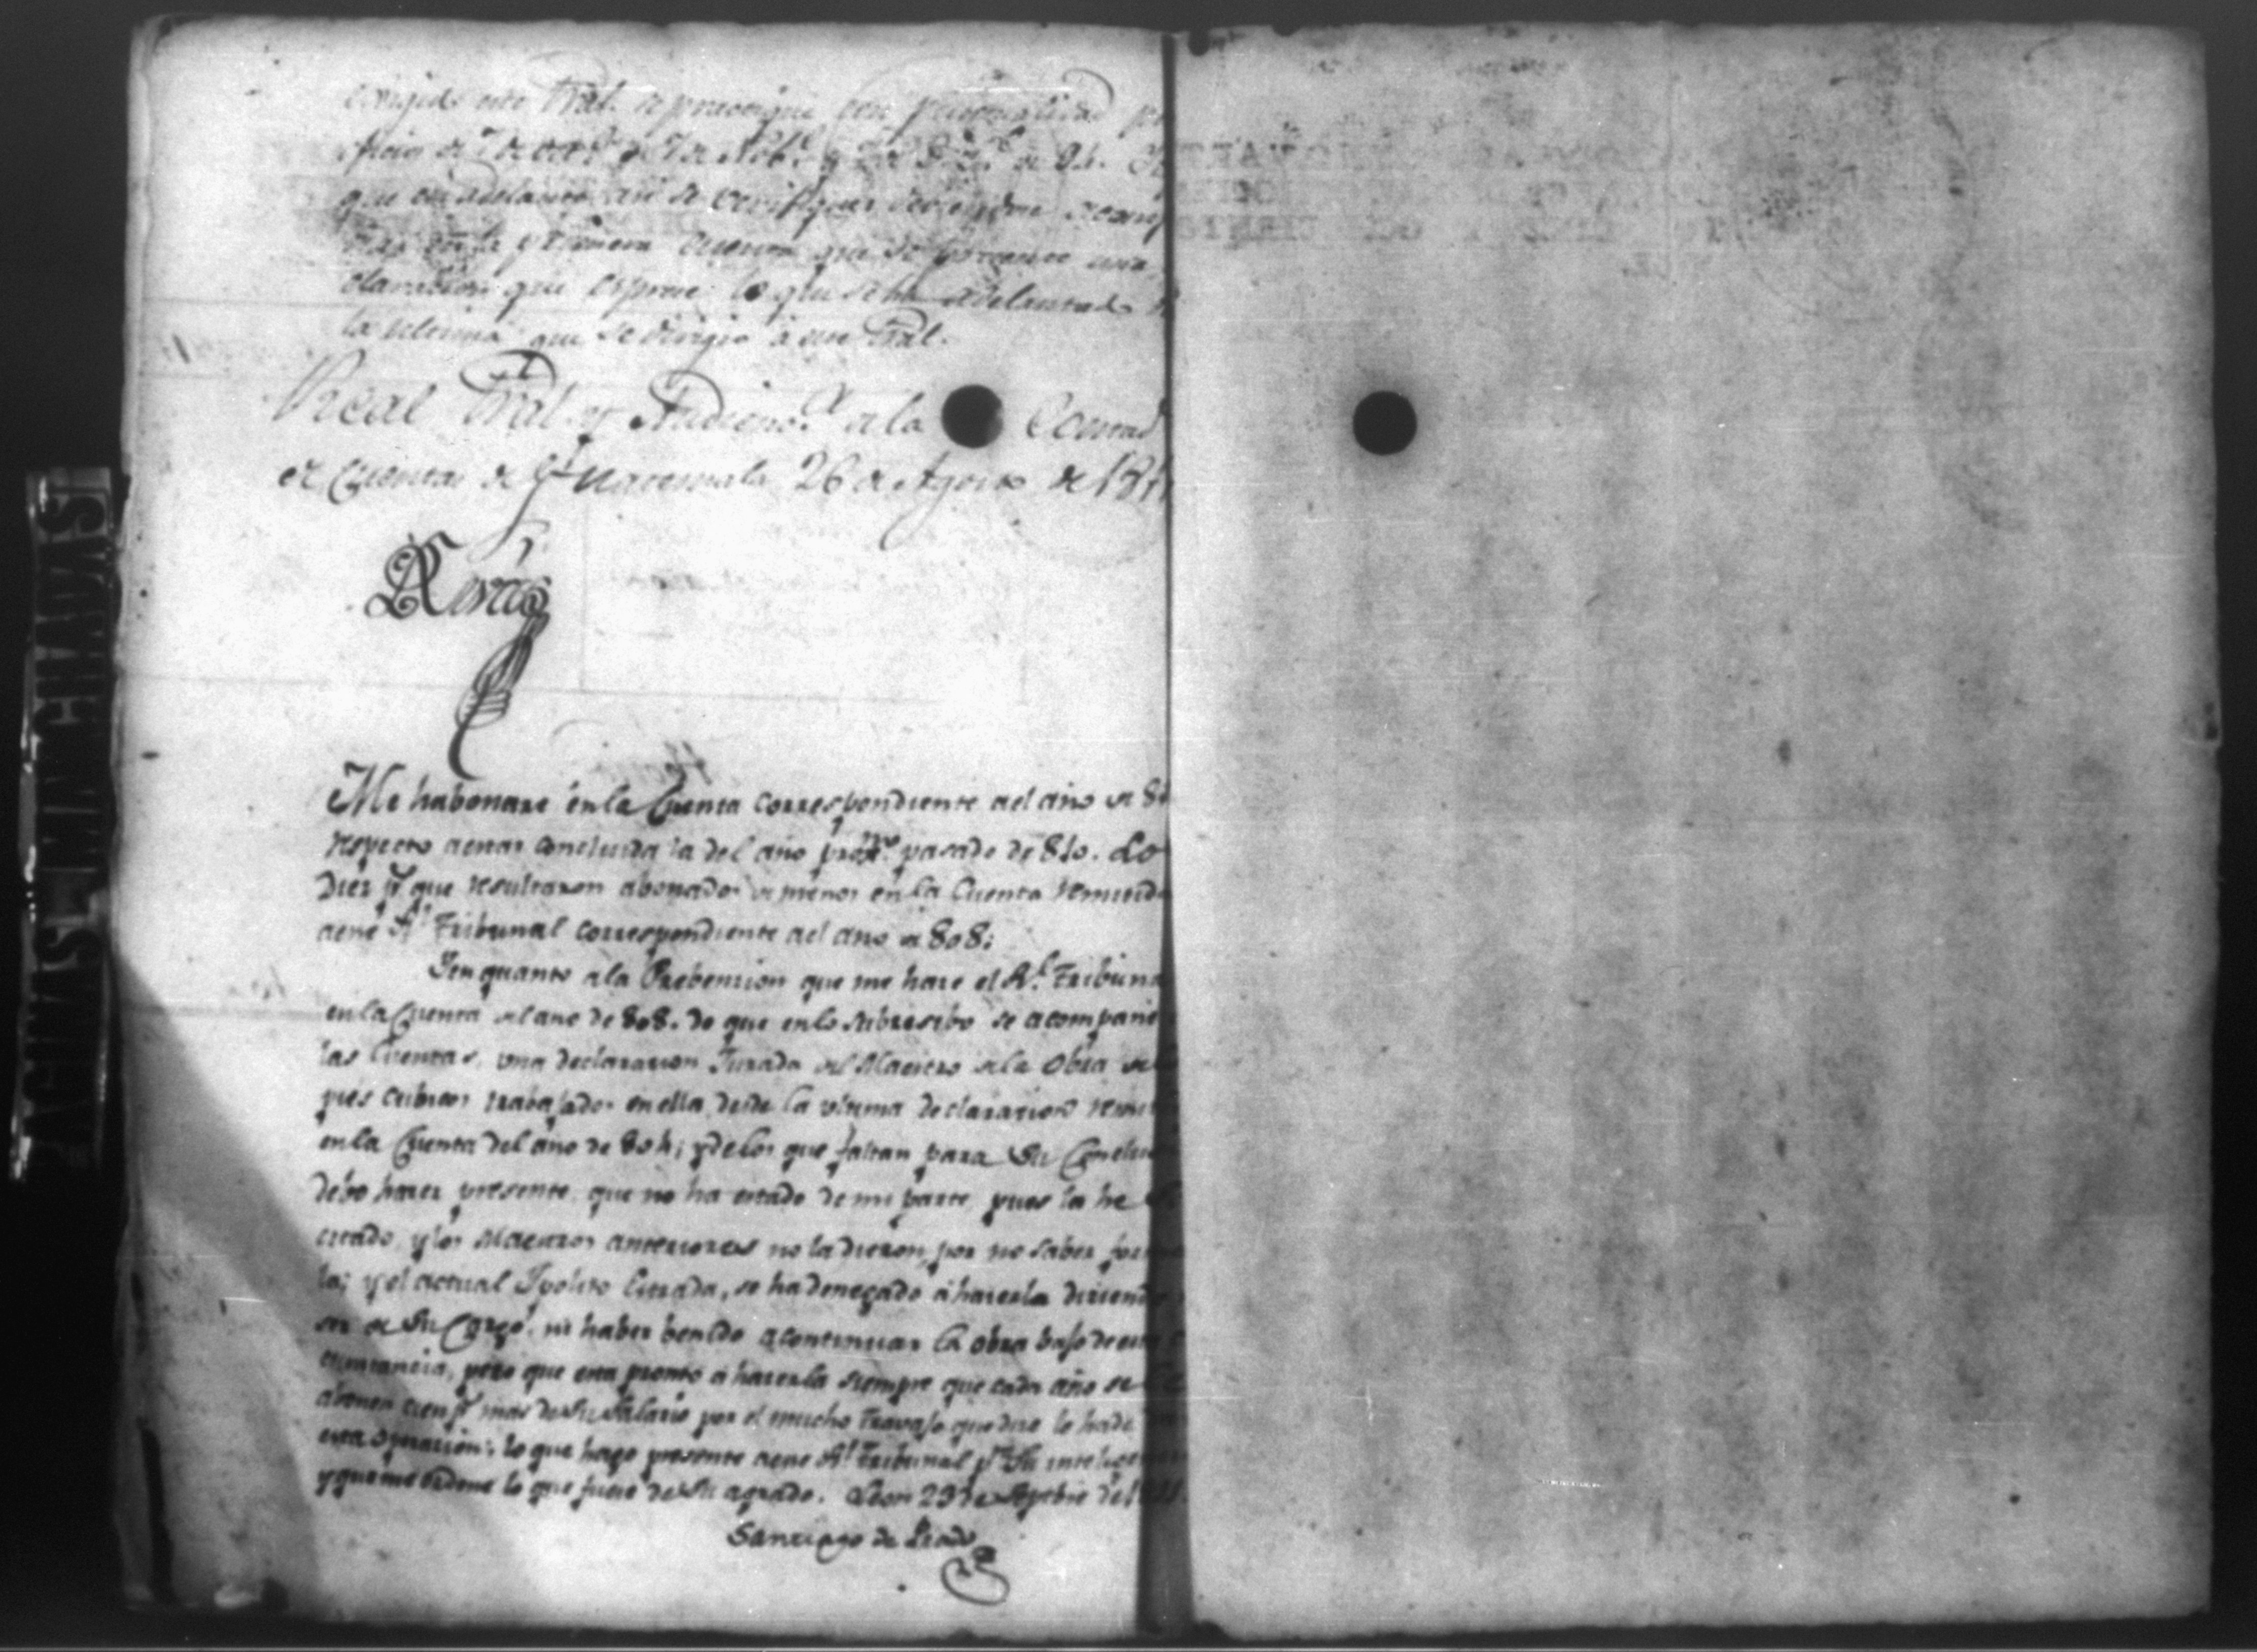 dirigido este Tral. se previene con puntualidad
oficios de 7 de oct.e y 7 de Nob.e de 94.
que en adelante asi se verifique deviendo acomp
cuenta que se presente una
claracion que exprese lo que se ha adelantado
la ultima que se dirigio a este Tral.
Real Tral. y Audienc.a de la Contad
de Cuentas de Guatemala 26 de Agosto de 1811
Me habonare en la Cuenta correspondiente ael año de 81
respecto aestar concluida la del año prox.mo pasado de 810. Lo
Diez p.s que resultaron abonados de menos en la Cuenta remitida
aese R.l Tribunal correspondiente ael año de 808;
Ien quanto ala Prebencion que me hace el R.l Tribuna
en la Cuenta del año de 808. de que en lo subcesibo se acompañe
las Cuentas, una declaracion Jurada del Maestro dela Obra de
pies cubicos trabajados en ella desde la ultima declaracion remi
en la Cuenta del año de 804; y delos que faltan para su Conclu
debo hacer presente, que no ha estado de mi parte, pues la he
citado, y los Maestros anteriores no la dieron, por no saber for
la; y el actual Ipolito Lusada, se ha denegado á hacerla diciendo
ser de su Cargo, ni haber benido acontinuar la obra bajo de esta
cunstancia, pero que esta pronto á hacerla siempre que cada año se
abonen cien p.s mas de su Salario por el mucho trabajo que dise le hade
esta operacion; lo que hago presente aese R.l Tribunal p.a su inteligen
y que me ordene lo que fuere de su agrado. Leon 23 de Sepbre de 1811.
Santiago de Prado